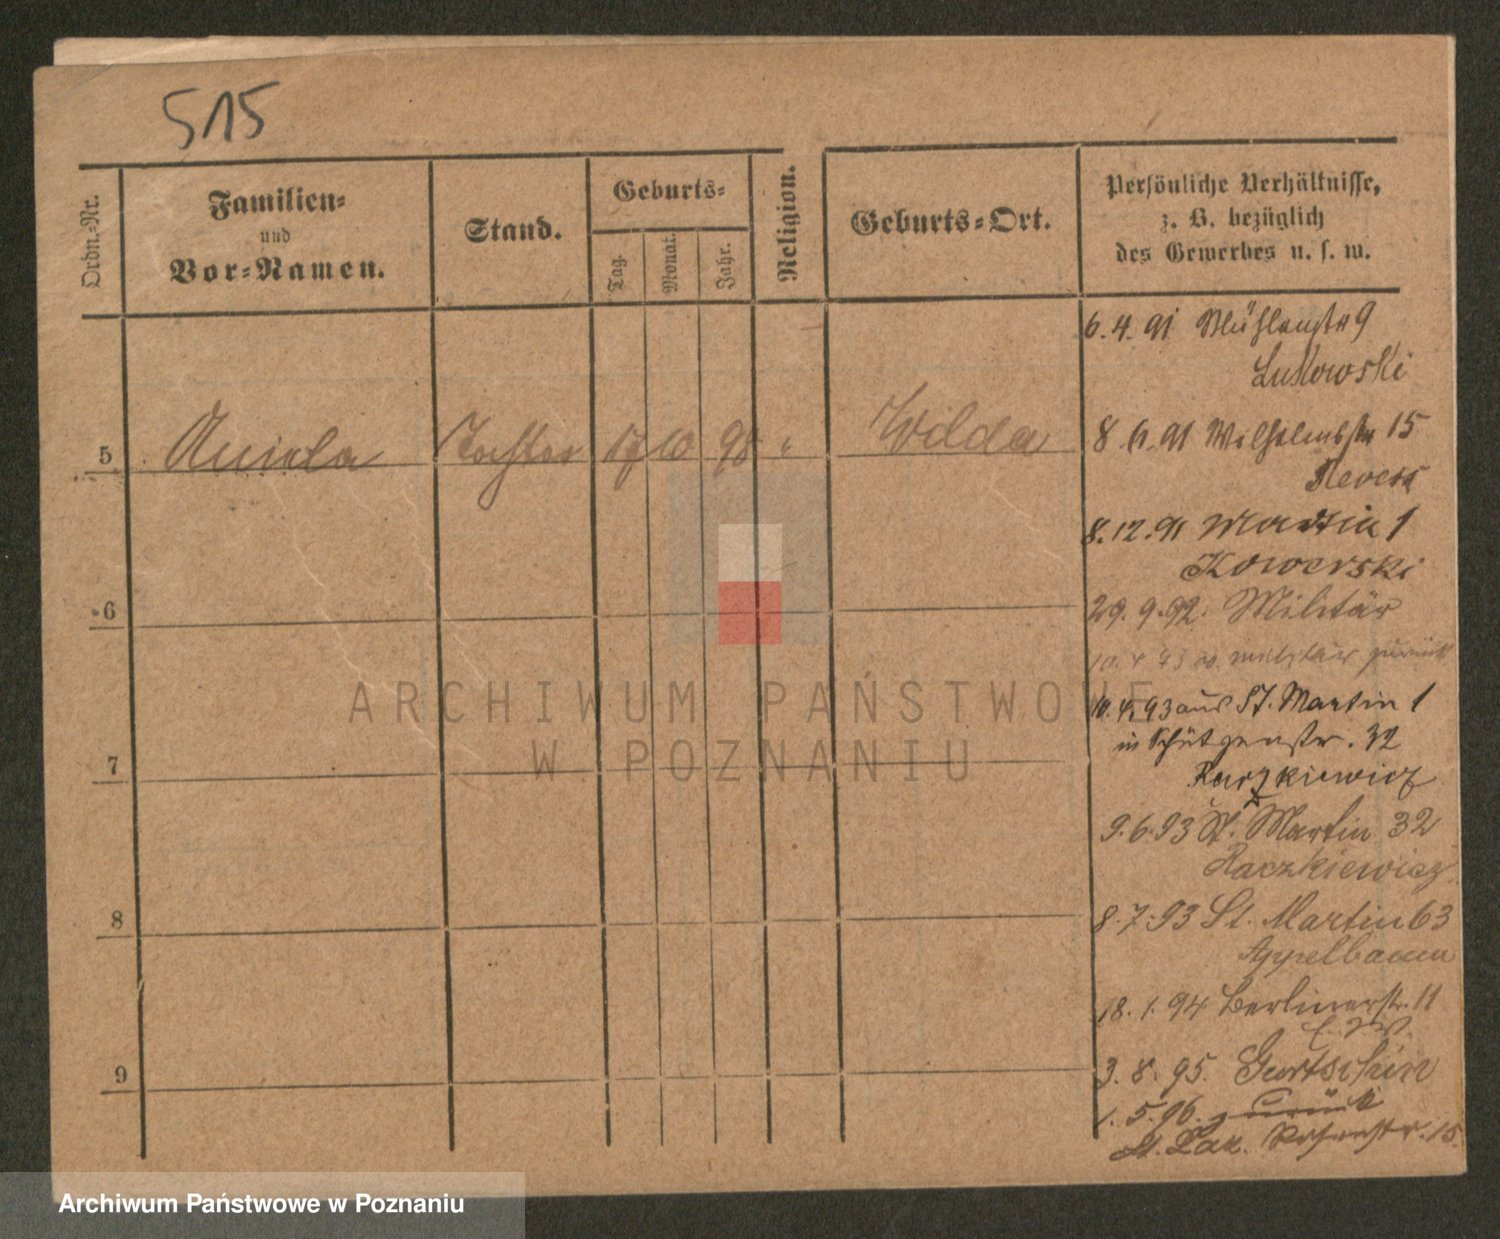 515
Ordn.-Nr.
Familien-
und
Vor-Namen.
Stand.
Geburts-
Tag.
Monat.
Jahr.
Religion.
Geburts-Ort.
Persönliche Verhältnisse,
z. B. bezüglich
des Gewerbes u. s. w.
5 Aniela Tochter 17 10 98 " Wilda
6
7
8
9
6.4.91 Mühlenstr 9
Lukowski
8. 91 Wilhelmstr 15
8.12.91 Martin 1
Kowerski
29.9.92. Militär
10.4.93 v. militär zurück
10.4.93 aus St. Martin 1
in Schützenstr. 32
Raczkiewicz
9.6.93 St. Martin 32
Raczkiewicz
8.7.93 St. Martin 63
Appelbaum
18.1.94 Berlinerstr. 11
3.8.95. Gurtschin
1.5.96. zurück
St. Laz. 15.
ARCHIWUM PAŃSTWOWE
W POZNANIU
Archiwum Państwowe w Poznaniu